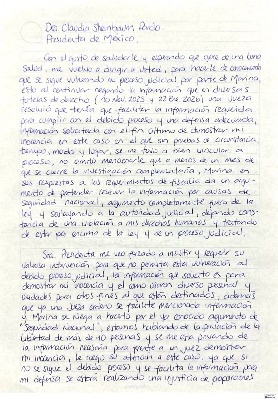 Dra. Claudia Sheinbaum Pardo.
Presidenta de México.
Con el gusto de saludarle y esperando que goce de una buena
salud, me vuelvo a dirigir a usted, para hacerle de conocimiento
que se sigue vulnerando mi proceso judicial por parte de Marina,
esto al continuar negando la información que en diversas
tutelas de derecho (10 Nov. 2025 y 22 Ene 2026) una jueza
resolvió que tenía que facilitar la información requerida
para cumplir con el debido proceso y una defensa adecuada,
información solicitada con el fin último de demostrar mi
inocencia en este caso en el que sin pruebas de circunstancia
tiempo, modo y lugar, se me dictó un auto vincular a
proceso, no omito mencionarle que a menos de un mes de
que se cierre la investigación complementaria, Marina en
sus respuestas a los requerimientos de fiscalía da un argu-
mento de pretender reservar la información por causas de
seguridad nacional, argumento completamente fuera de la
ley y soslayando a la autoridad judicial, dejando cons-
tancia de una violación a mis derechos humanos y tratando
de estar por encima de la ley y de un proceso judicial.
Sra. Presidenta me veo forzado a insistir y requerir su
valiosa intervención para que no permita esta vulneración al
debido proceso judicial, la información que solicito es para
demostrar mi inocencia y el como sirven diverso personal y
unidades para otros fines al que están destinados, además
que ya una Jueza ordenó se facilite mencionada información
y Marina se niega a hacerlo por el ya conocido argumento de
"Seguridad Nacional", estamos hablando de la privación de la
libertad de más de 10 personas y se me está privando de
la información necesaria para frente a un juez demostrar
mi inocencia, le ruego su atención a este caso, ya que si
no se sigue el debido proceso y se facilita la información para
mi defensa se estará realizando una injusticia de proporciones